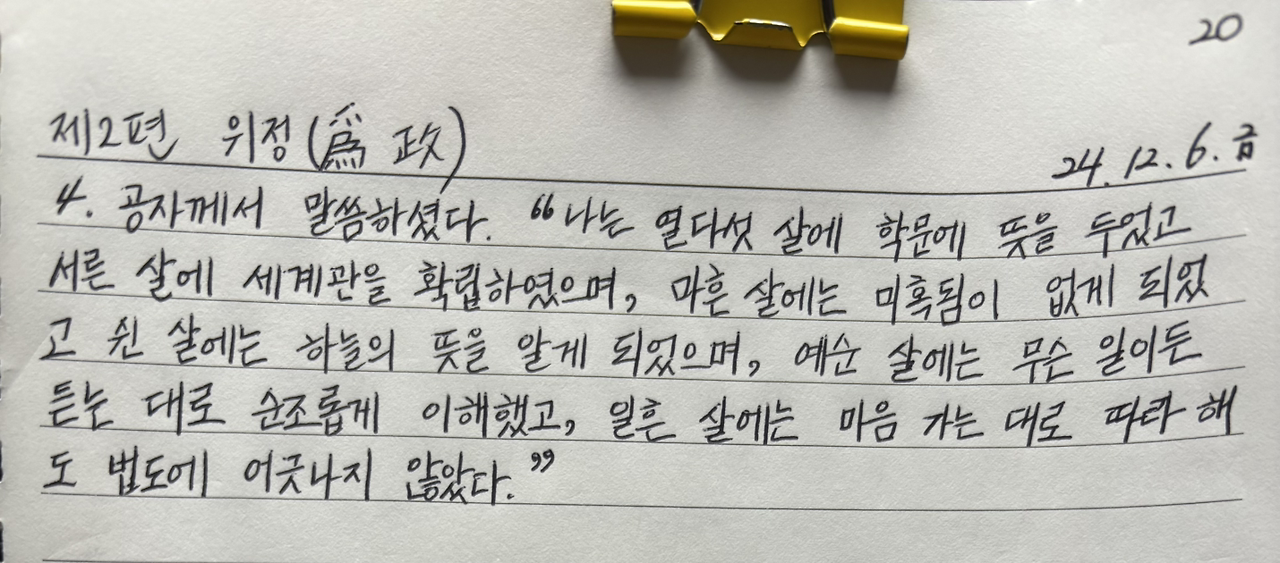 20
제2편 위정(爲政)
24.12.6.금
4. 공자께서 말씀하셨다. “나는 열다섯 살에 학문에 뜻을 두었고
서른 살에 세계관을 확립하였으며, 마흔 살에는 미혹됨이 없게 되었
고 쉰 살에는 하늘의 뜻을 알게 되었으며, 예순 살에는 무슨 일이든
듣는 대로 순조롭게 이해했고, 일흔 살에는 마음 가는 대로 따라 해
도 법도에 어긋나지 않았다.”